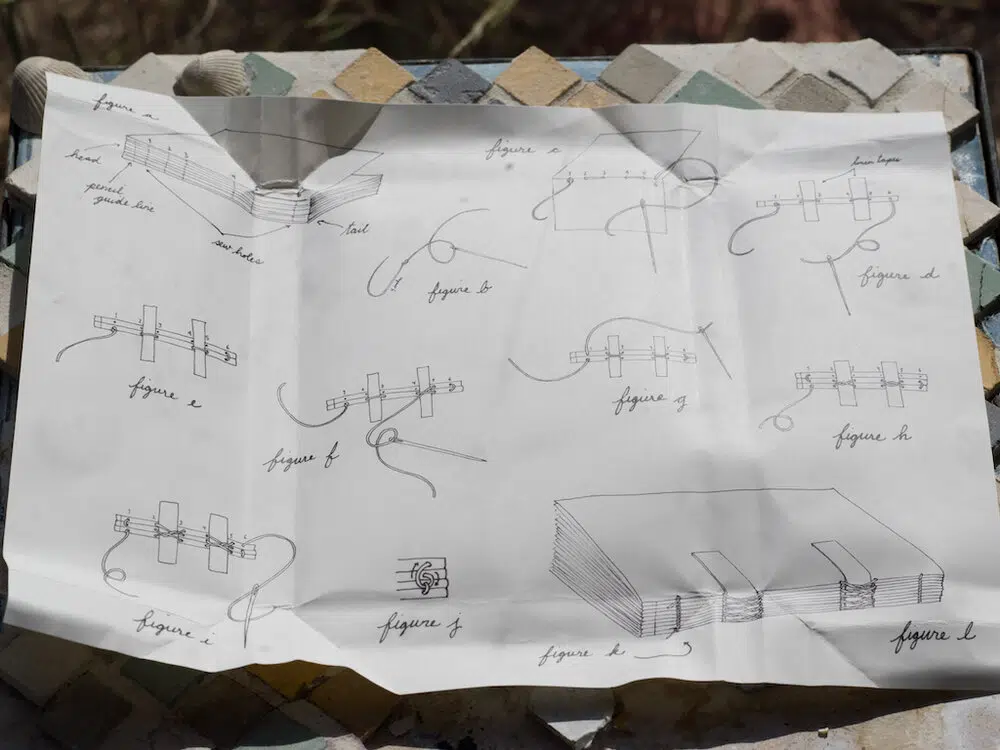 figure a
head
pencil
guide line
sew holes
tail
figure b
figure c
linen tapes
figure d
figure e
figure f
figure g
figure h
figure i
figure j
figure k
figure l